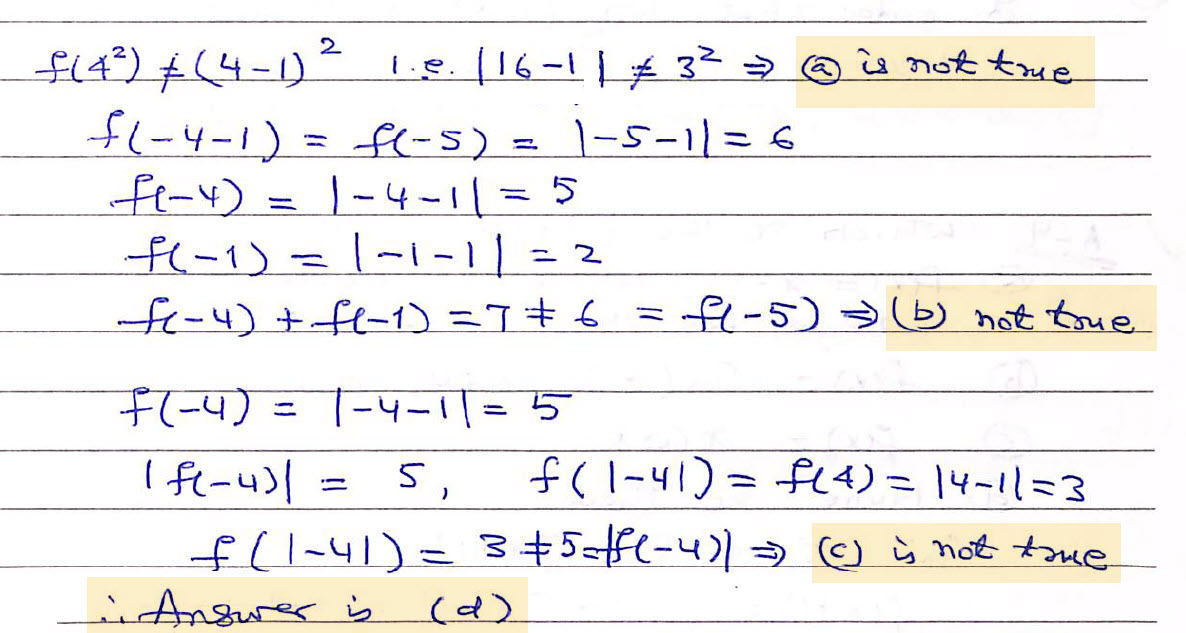 f(4²) ≠ (4-1)² i.e. |16-1| ≠ 3² ⇒ ⓐ is not true
f(-4-1) = f(-5) = |-5-1| = 6
f(-4) = |-4-1| = 5
f(-1) = |-1-1| = 2
f(-4) + f(-1) = 7 ≠ 6 = f(-5) ⇒ (b) not true
f(-4) = |-4-1| = 5
|f(-4)| = 5, f(|-4|) = f(4) = |4-1| = 3
f(|-4|) = 3 ≠ 5 = |f(-4)| ⇒ (c) is not true
∴ Answer is (d)